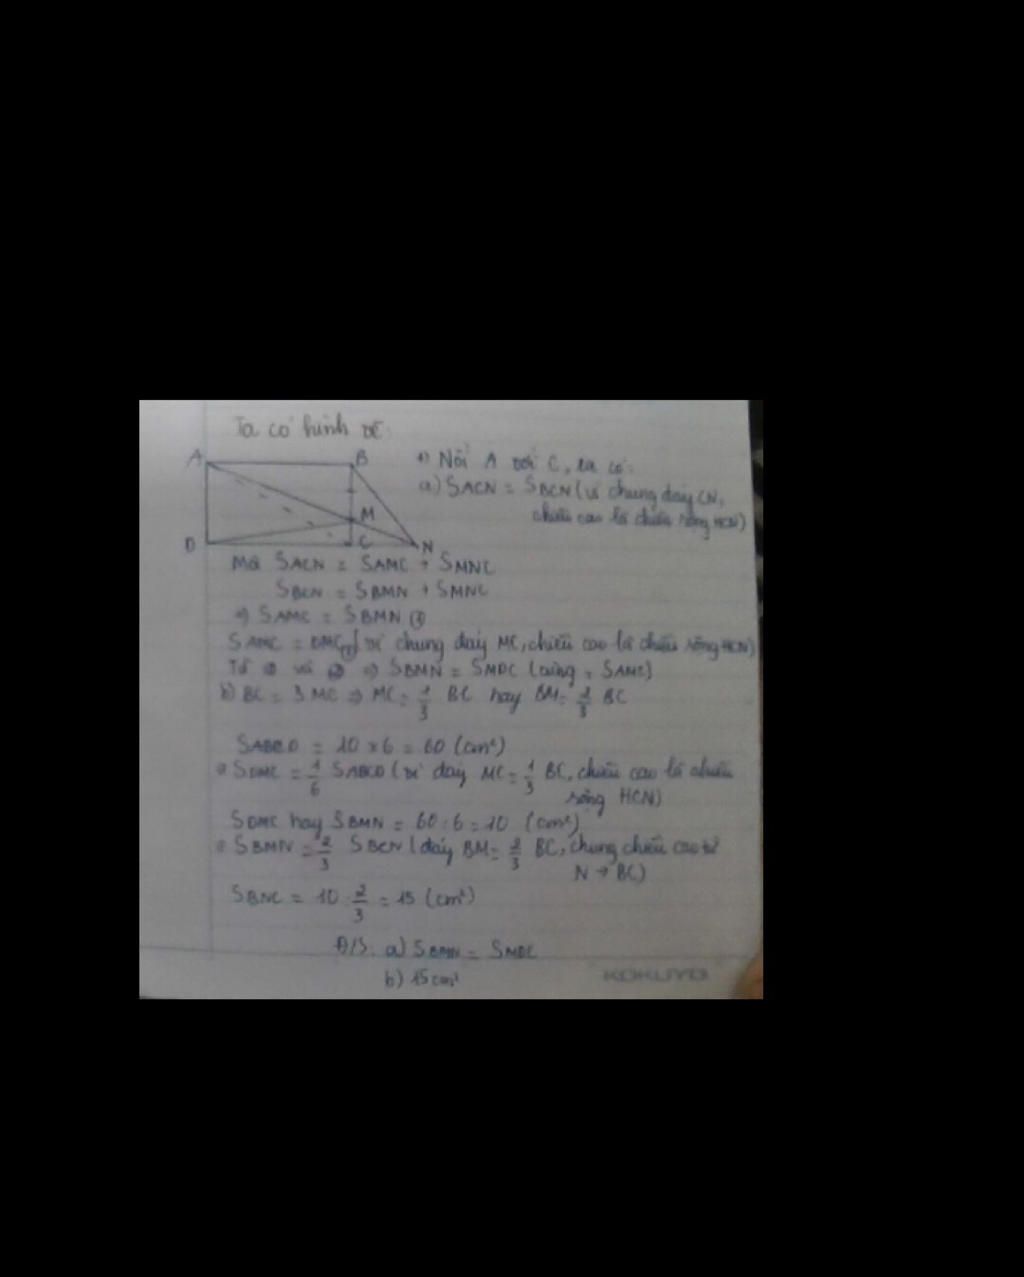 Ta có hình vẽ:
A B
M
D C N
+) Nối A với C, ta có:
a) SACN = SBCN (vì chung đáy CN,
chiều cao là chiều rộng HCN)
Mà SACN = SAMC + SMNC
SBCN = SBMN + SMNC
=> SAMC = SBMN ①
SAMC = DMC ② (vì chung đáy MC, chiều cao là chiều rộng HCN)
Từ ① và ② => SBMN = SMDC (cùng = SAMC)
b) BC = 3 MC => MC = 1/3 BC hay BM = 2/3 BC
SABCD = 10 × 6 = 60 (cm²)
SDMC = 1/6 SABCD (vì đáy MC = 1/3 BC, chiều cao là chiều
rộng HCN)
SDMC hay SBMN = 60 : 6 = 10 (cm²)
SBMN = 2/3 SBCN (đáy BM = 2/3 BC, chung chiều cao từ
N → BC)
SBNC = 10 : 2/3 = 15 (cm²)
Đ/S: a) SBMN = SMDC
b) 15 cm²
KOKUYO